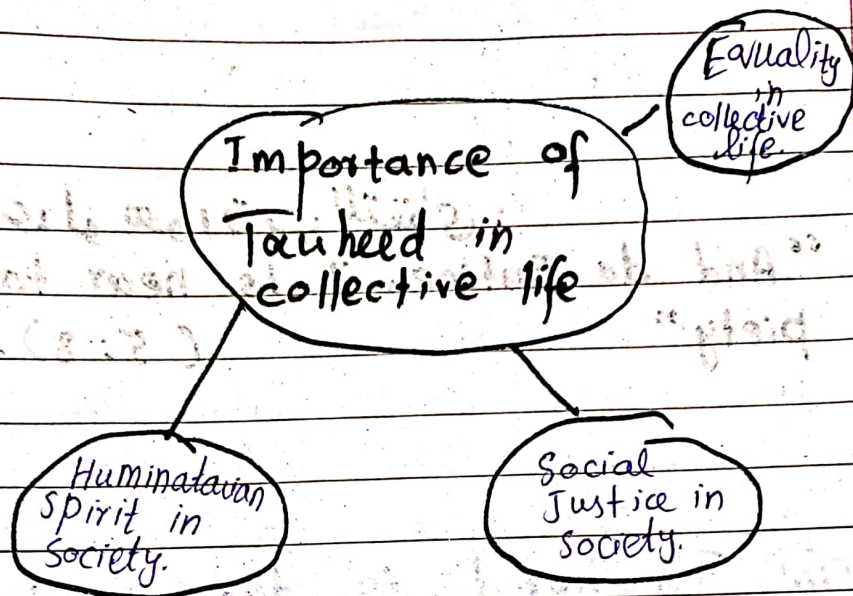 Importance of
Tauheed in
collective life
Equality
in
collective
life.
Huminatavian
spirit in
society.
Social
Justice in
society.
"And
piety"